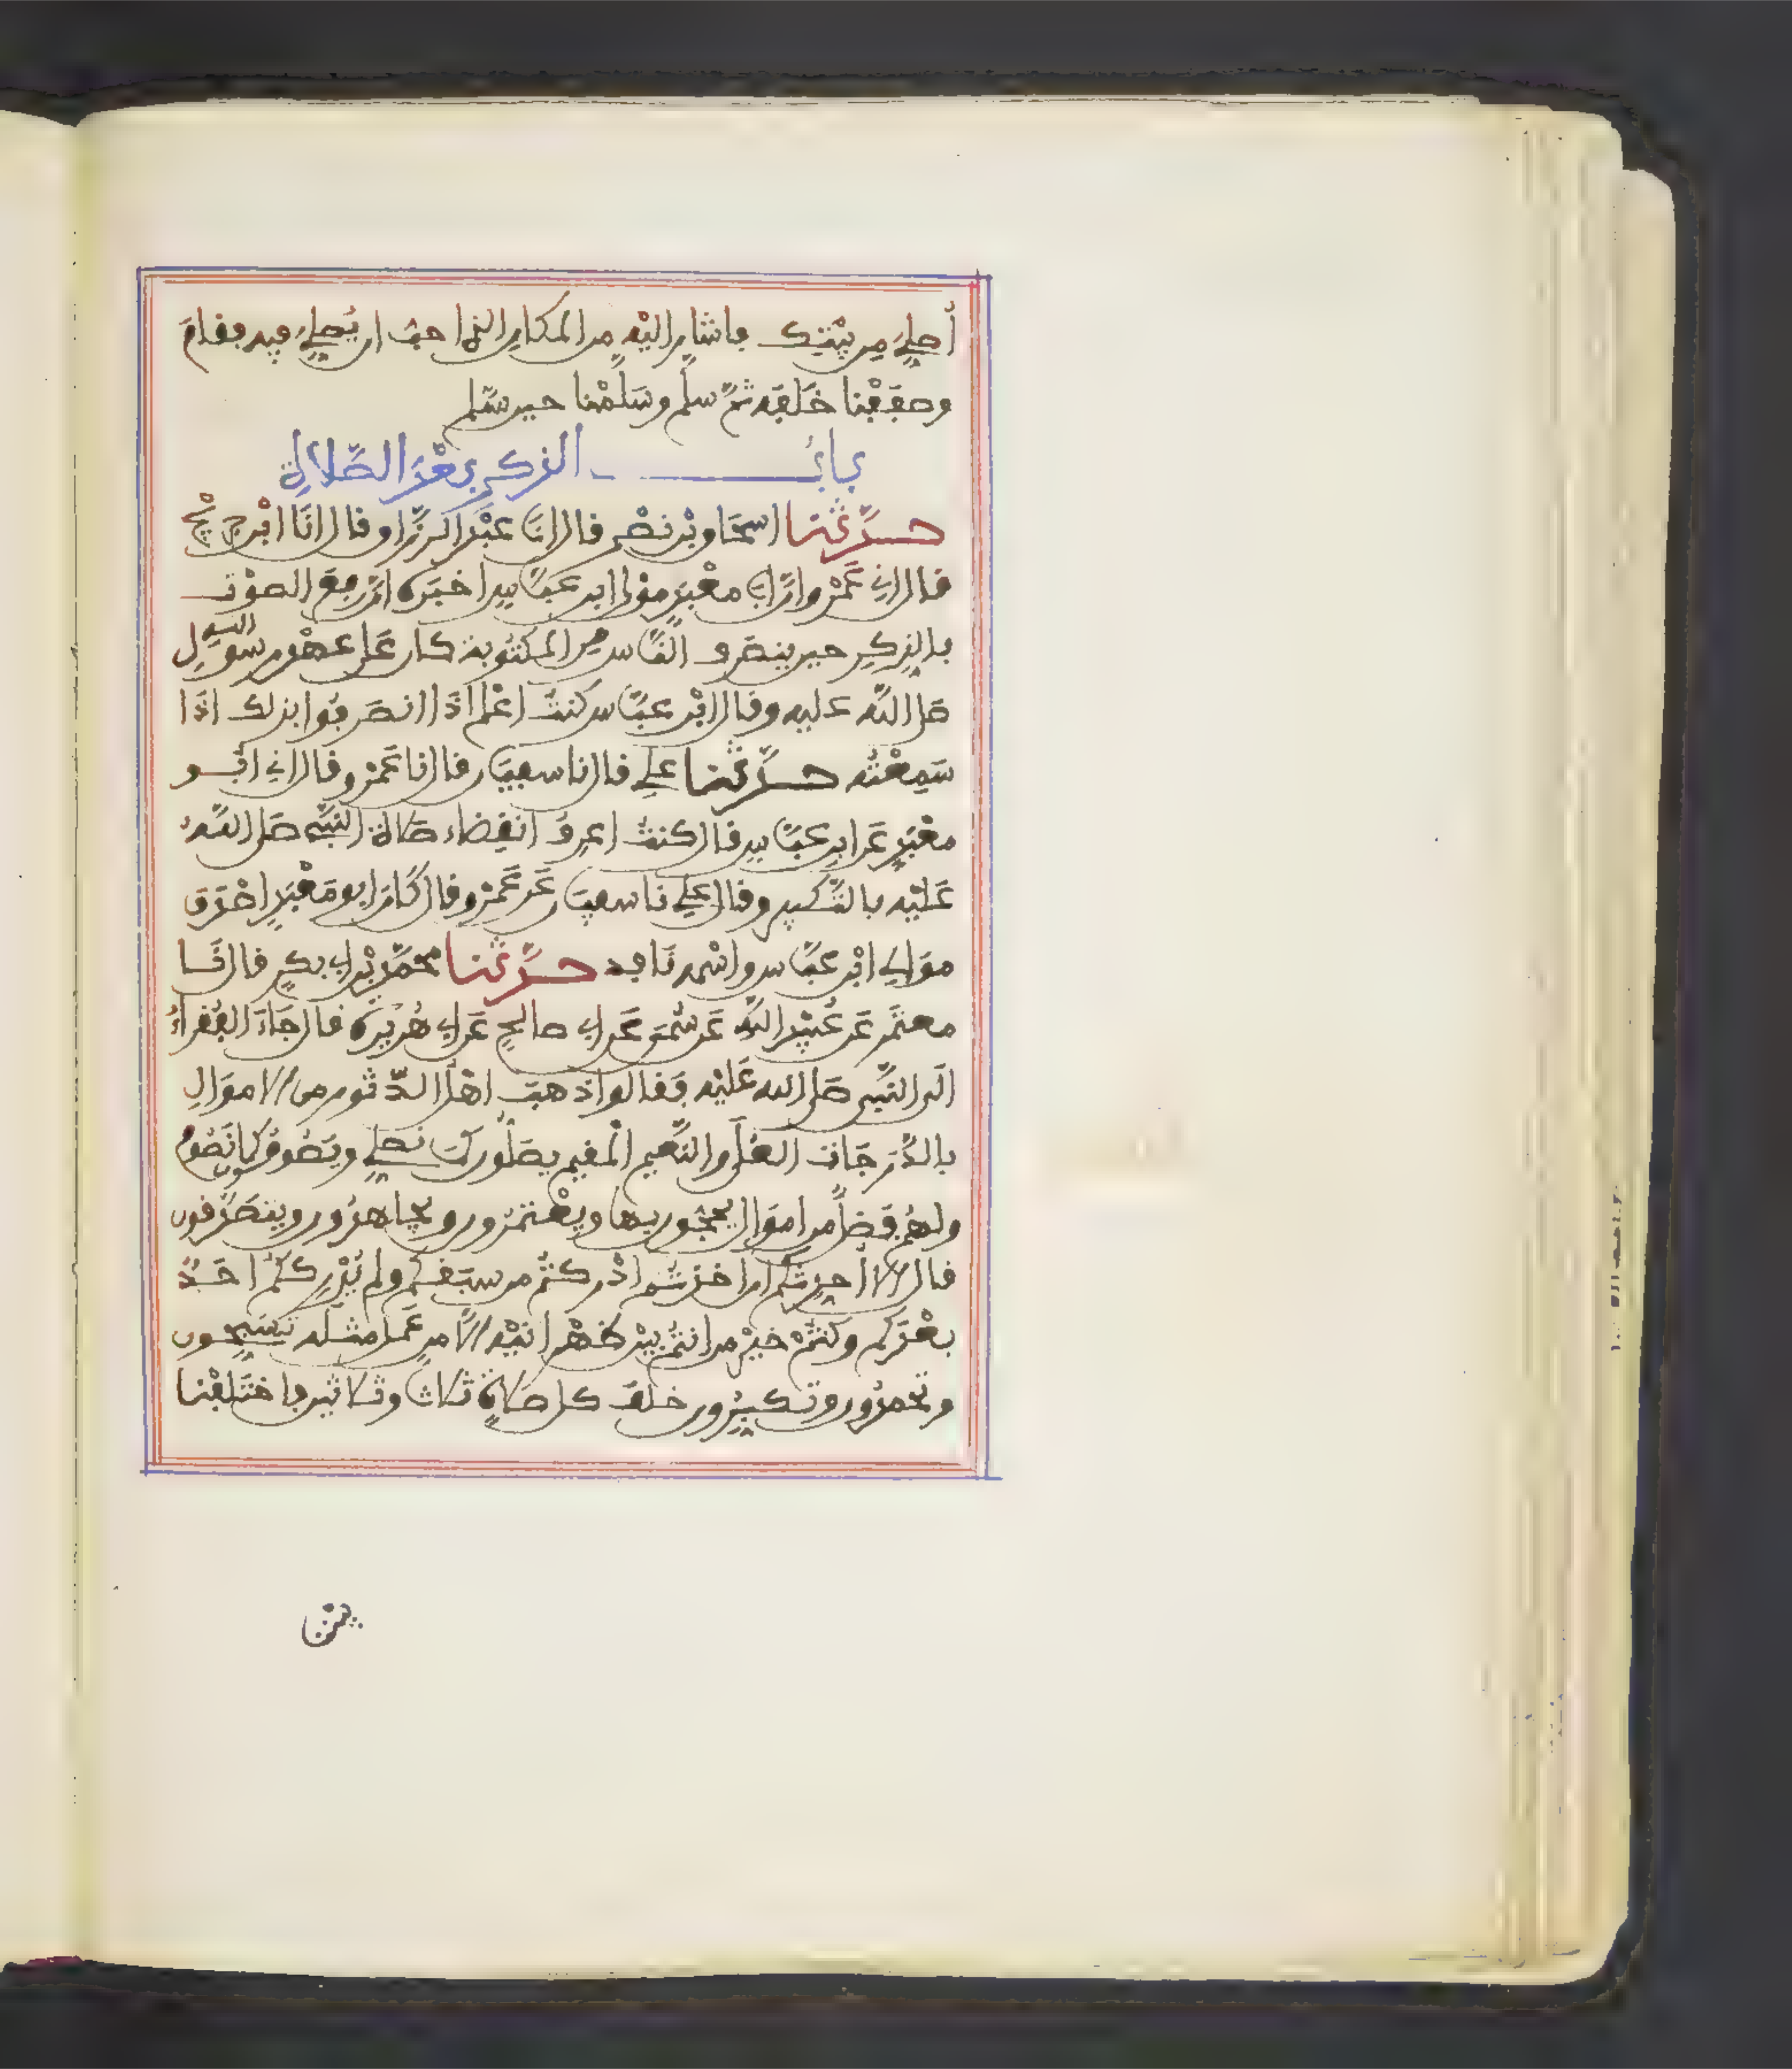 أصلي من بيتك فاشار اليه من المكان الذي احب ان يصلي فيه فقام
وصففنا خلفه ثم سلم وسلمنا حين سلم
باب الذكر بعد الصلاة
حدثنا اسحاق بن نصر قال انا عبد الرزاق قال انا ابن جريج
قال اني عمرو ان ابا معبد مولى ابن عباس اخبره ان رفع الصوت
بالذكر حين ينصرف الناس من المكتوبة كان على عهد رسول الله
صلى الله عليه وقال ابن عباس كنت اعلم اذا انصرفوا بذلك اذا
سمعته حدثنا علي قال نا سفيان قال نا عمرو قال اني ابو
معبد عن ابن عباس قال كنت اعرف انقضاء صلاة النبي صلى الله
عليه بالتكبير وقال علي نا سفيان عن عمرو قال كان ابو معبد اصدق
موالي ابن عباس واسمه نافد حدثنا محمد بن ابي بكر قال نا
معتمر عن عبيد الله عن سمي عن ابي صالح عن ابي هريرة قال جاء الفقراء
الى النبي صلى الله عليه فقالوا ذهب اهل الدثور من الاموال
بالدرجات العلى والنعيم المقيم يصلون كما نصلي ويصومون كما نصوم
ولهم فضل من اموال يحجون بها ويعتمرون ويجاهدون ويتصدقون
قال الا احدثكم ان اخذتم ادركتم من سبقكم ولم يدرككم احد
بعدكم وكنتم خير من انتم بين ظهرانيه الا من عمل مثله تسبحون
وتحمدون وتكبرون خلف كل صلاة ثلاثا وثلاثين فاختلفنا
بيننا